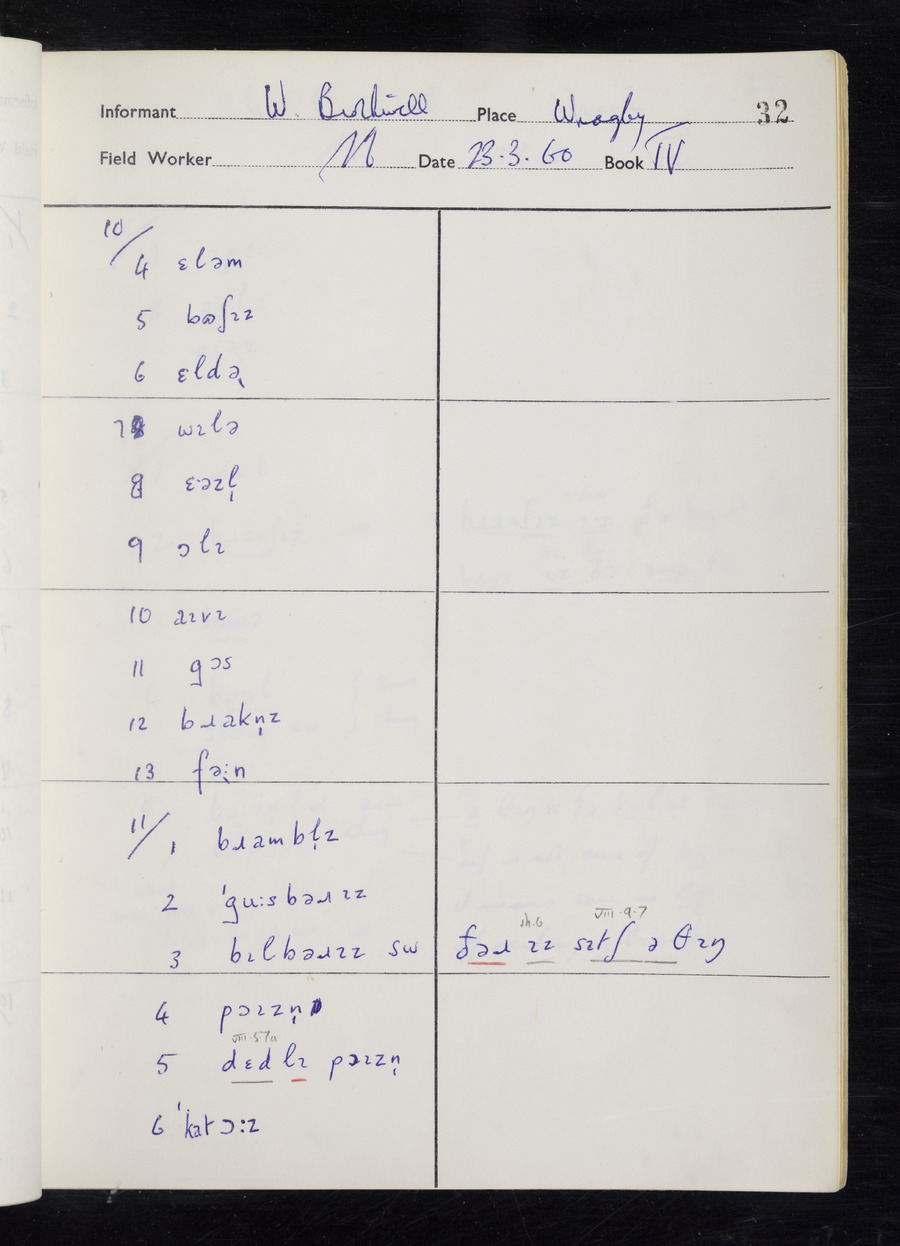 Informant W. Birkwell Place Wragby 32
Field Worker Date 23.3.60 Book IV
10/
4 ɛləm
5 bɷʃɪz
6 ɛldə
7 ɯɪlə
8 ɛ·əzl̩
9 ɔlɪ
10 aɪvɪ
11 gɔs
12 bɹakn̩z
13 fə:n
11/ 1 bɹambl̩z
2 ˈgu:sbəɹɪz
3 bɪlbəɹɪz sɯ ðəɹ ɪz sɪtʃ ə θɪŋ
sh.6 VIII.9.7
4 pɔɪzn̩
VIII.5.7a
5 dɛdlɪ pɔɪzn̩
6 ˈkatɔ:z